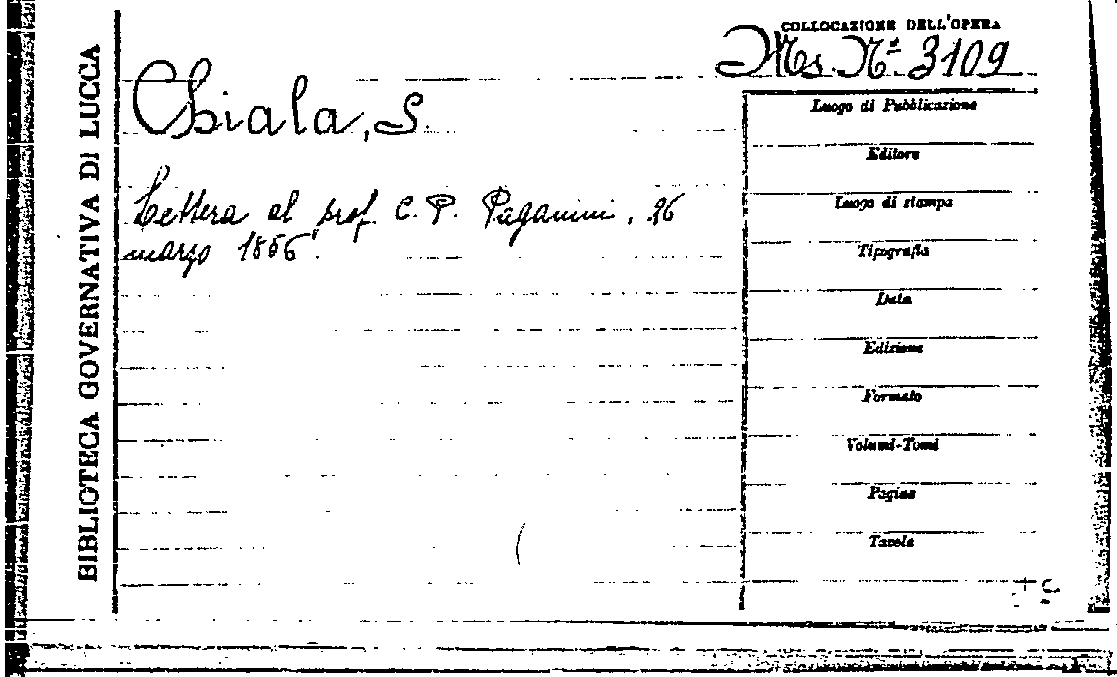 BIBLIOTECA GOVERNATIVA DI LUCCA
COLLOCAZIONE DELL'OPERA
Ms. Nº 3109
Chiala, S.
Lettera al prof. C. P. Paganini, 26
marzo 1856.
Luogo di Pubblicazione
Editore
Luogo di stampa
Tipografia
Data
Edizione
Formato
Volumi-Tomi
Pagine
Tavole